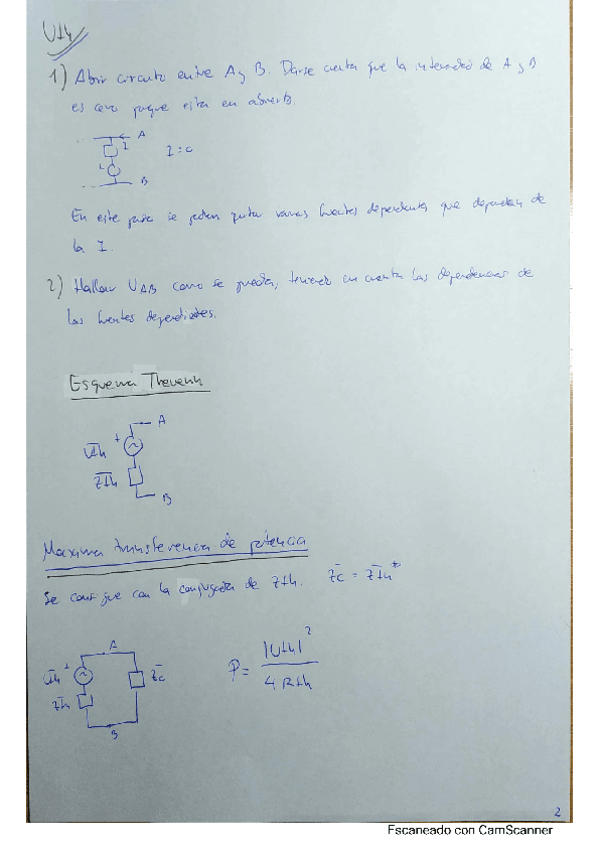 Uth
1) Abrir circuito entre A y B. Darse cuenta que la intensidad de A y B
es cero porque esta en abierto.
A
I
I = 0
B
En este paso se pueden quitar varias fuentes dependientes que dependen de
la I.
2) Hallar UAB como se pueda, teniendo en cuenta las dependencias de
las fuentes dependientes.
Esquema Thevenin
A
+
Uth
Zth
B
Maxima transferencia de potencia
Se consigue con la conjugada de Zth. Zc = Zth*
A
Uth +
Zc
Zth
B
P = |Uth|² / 4 Rth
2
Escaneado con CamScanner